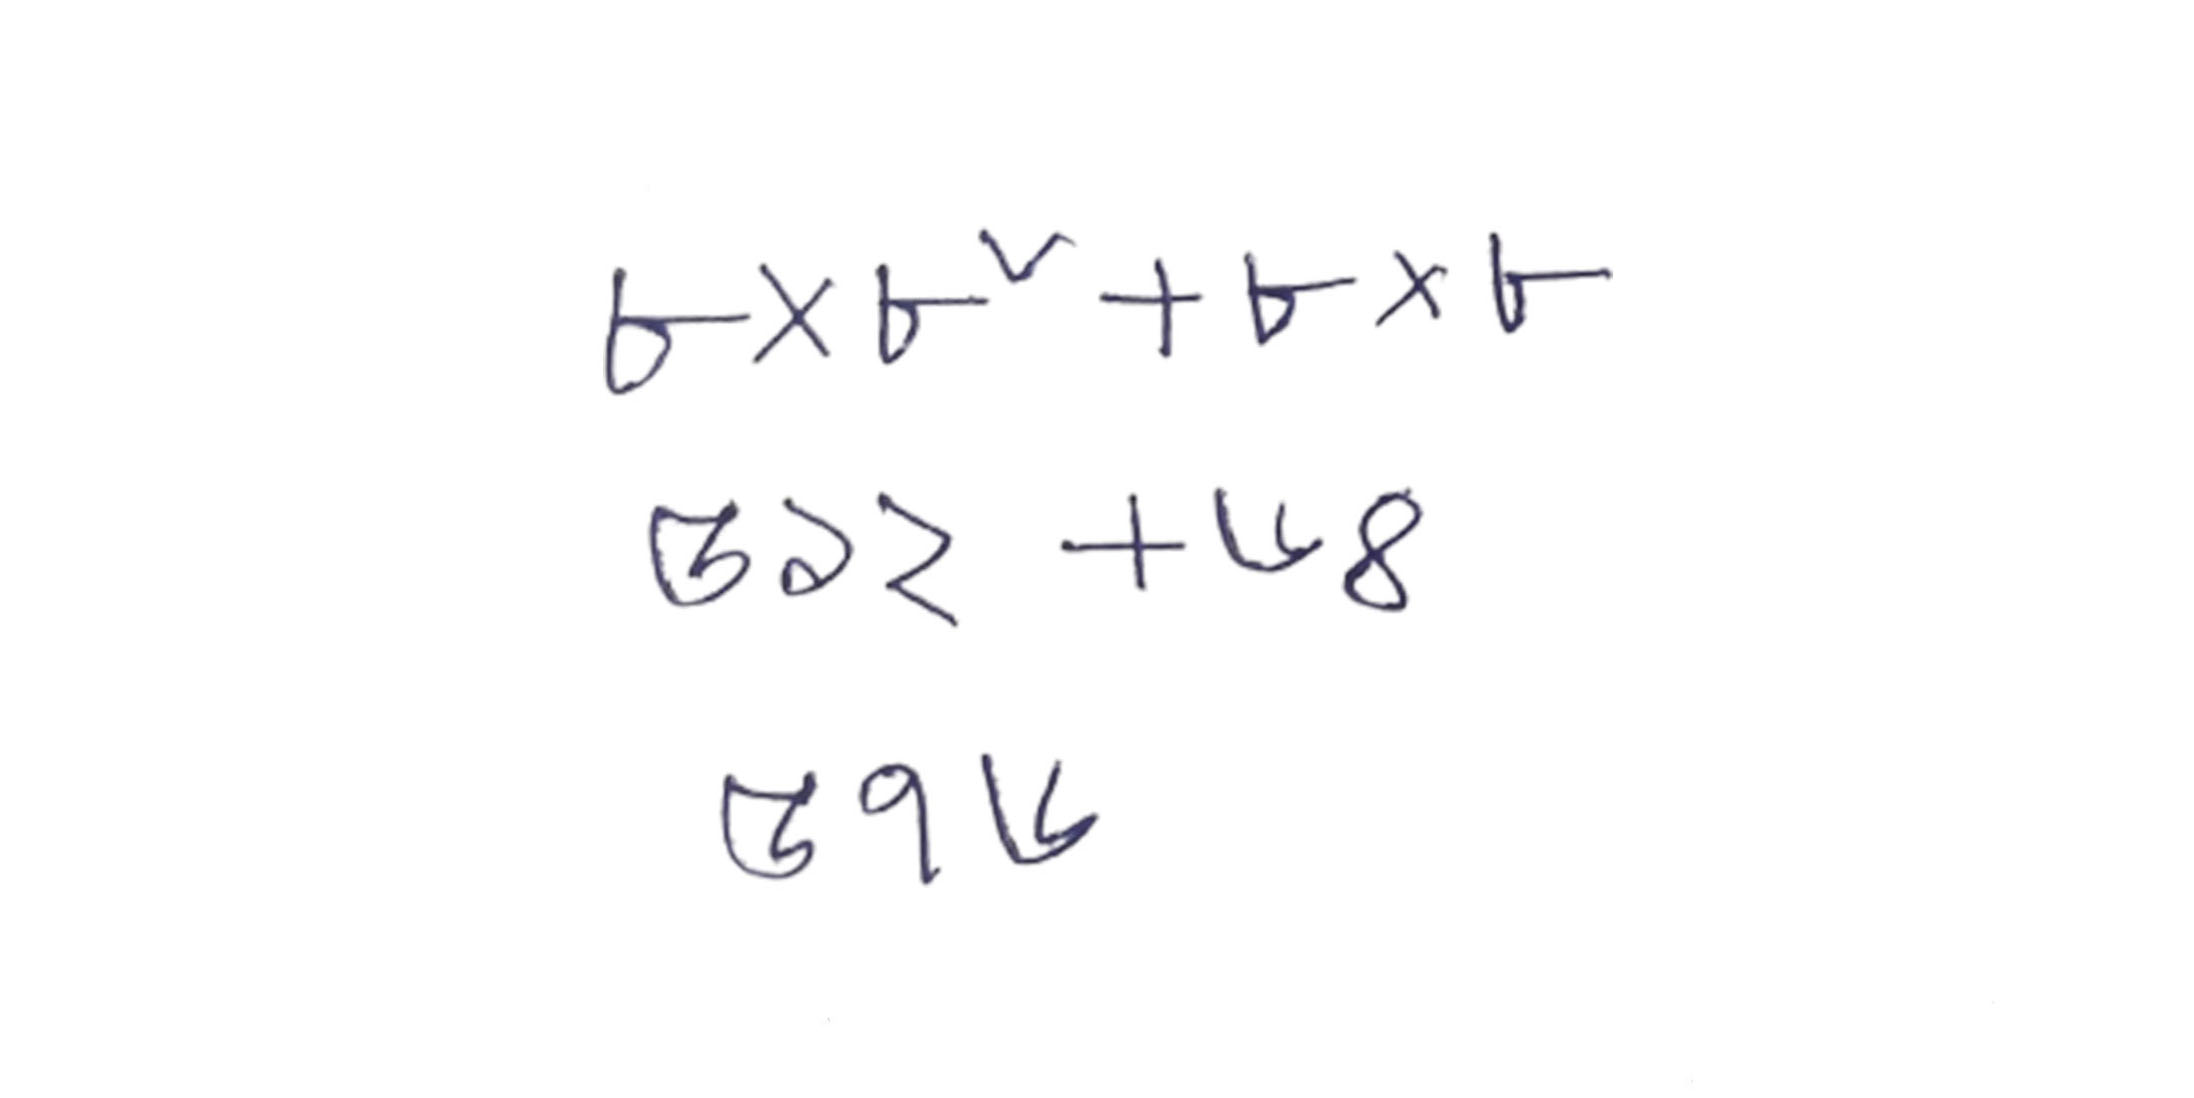 ৮×৮² + ৮×৮
৫১২ + ৬৪
৫৭৬